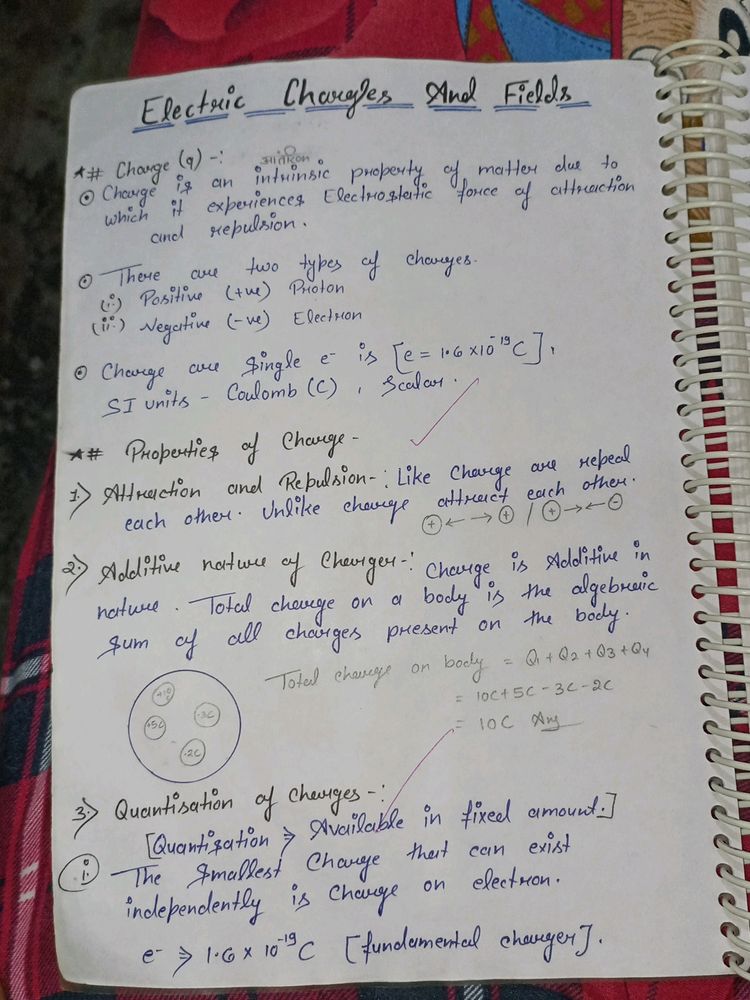 Electric Charges And Fields
*# Charge (q) -:
आंतरिक
⊙ Charge is an intrinsic property of matter due to
which it experiences Electrostatic force of attraction
and repulsion.
⊙ There are two types of charges.
(i) Positive (+ve) Proton
(ii) Negative (-ve) Electron
⊙ Charge are single e⁻ is [e = 1.6×10⁻¹⁹C].
SI units - Coulomb (C) , Scalar.
*# Properties of Charge -
1.> Attraction and Repulsion-: Like Charge are repeal
each other. Unlike charge attract each other.
⊕← →⊕ / ⊕→←⊖
2.> Additive nature of Charger-: Charge is Additive in
nature. Total charge on a body is the algebraic
sum of all charges present on the body.
Total charge on body = Q1 + Q2 + Q3 + Q4
= 10C+5C-3C-2C
= 10C Ans
+5C
-3C
-2C
3.> Quantisation of Charges-:
[Quantisation ⇒ Available in fixed amount.]
(i) The Smallest Charge that can exist
independently is Charge on electron.
e⁻ ⇒ 1.6 × 10⁻¹⁹ C [fundamental charger].